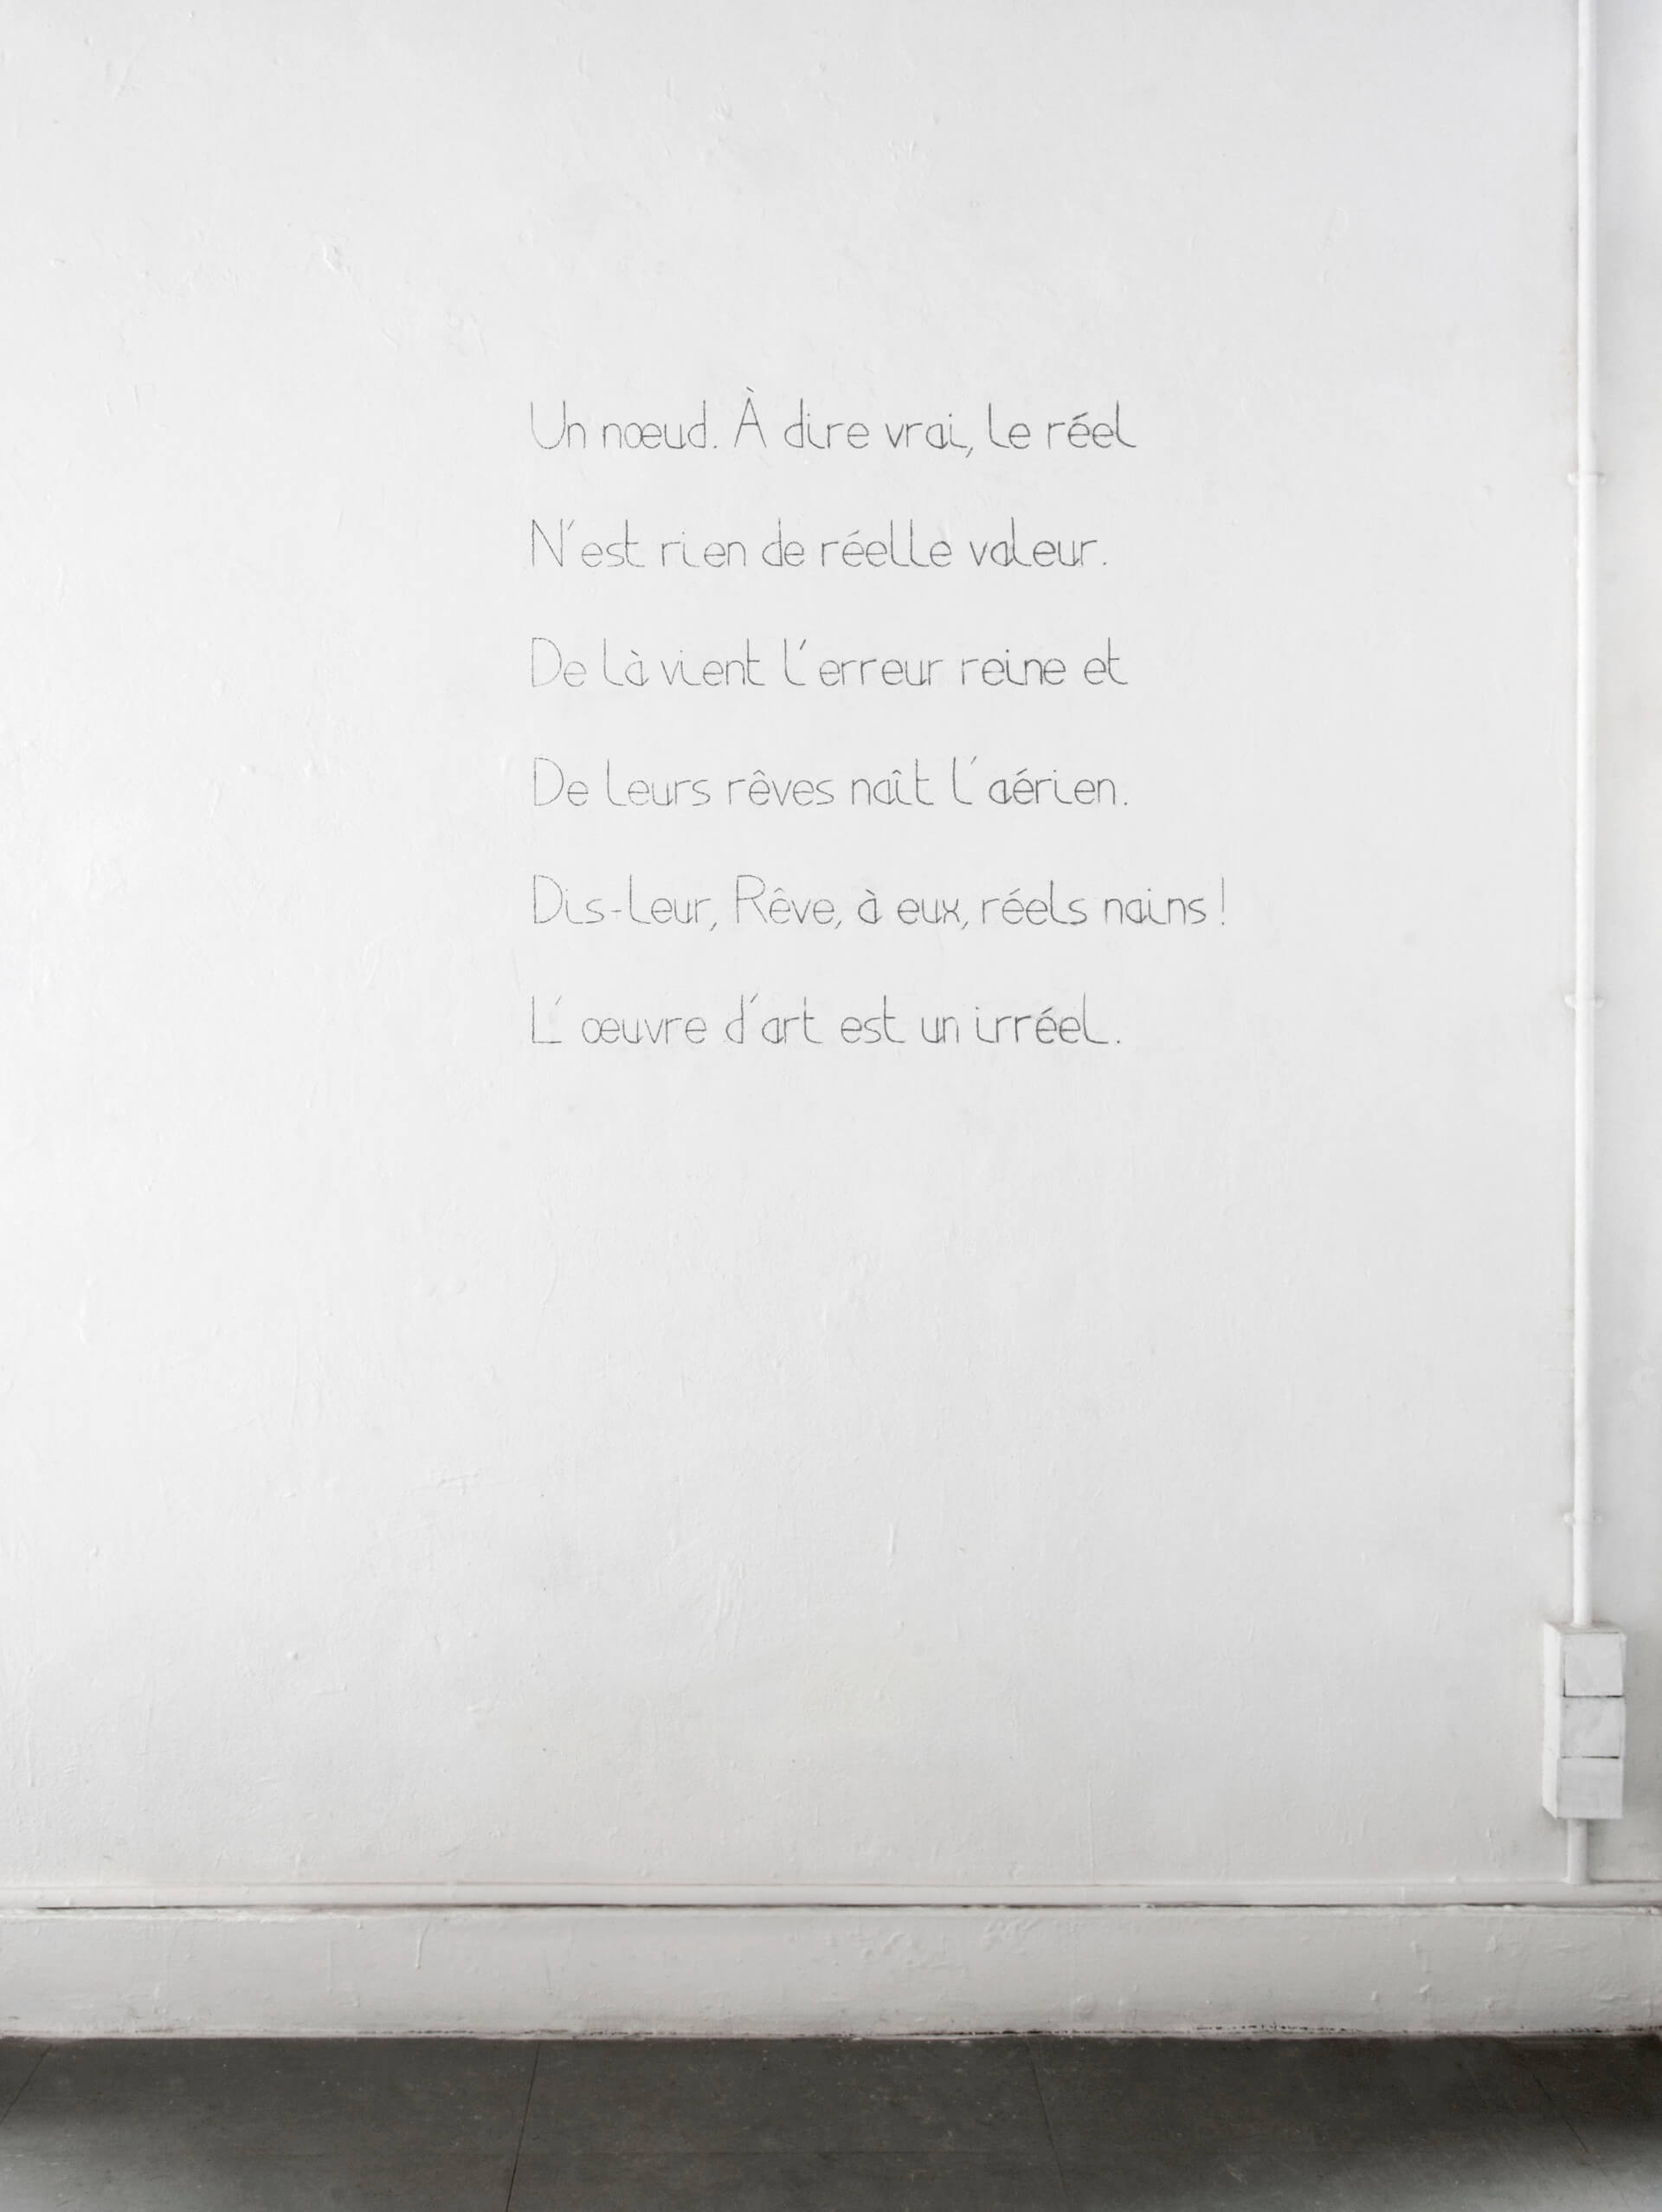 Un nœud. À dire vrai, le réel
N'est rien de réelle valeur.
De là vient l'erreur reine et
De leurs rêves naît l'aérien.
Dis-leur, Rêve, à eux, réels nains !
L'œuvre d'art est un irréel.